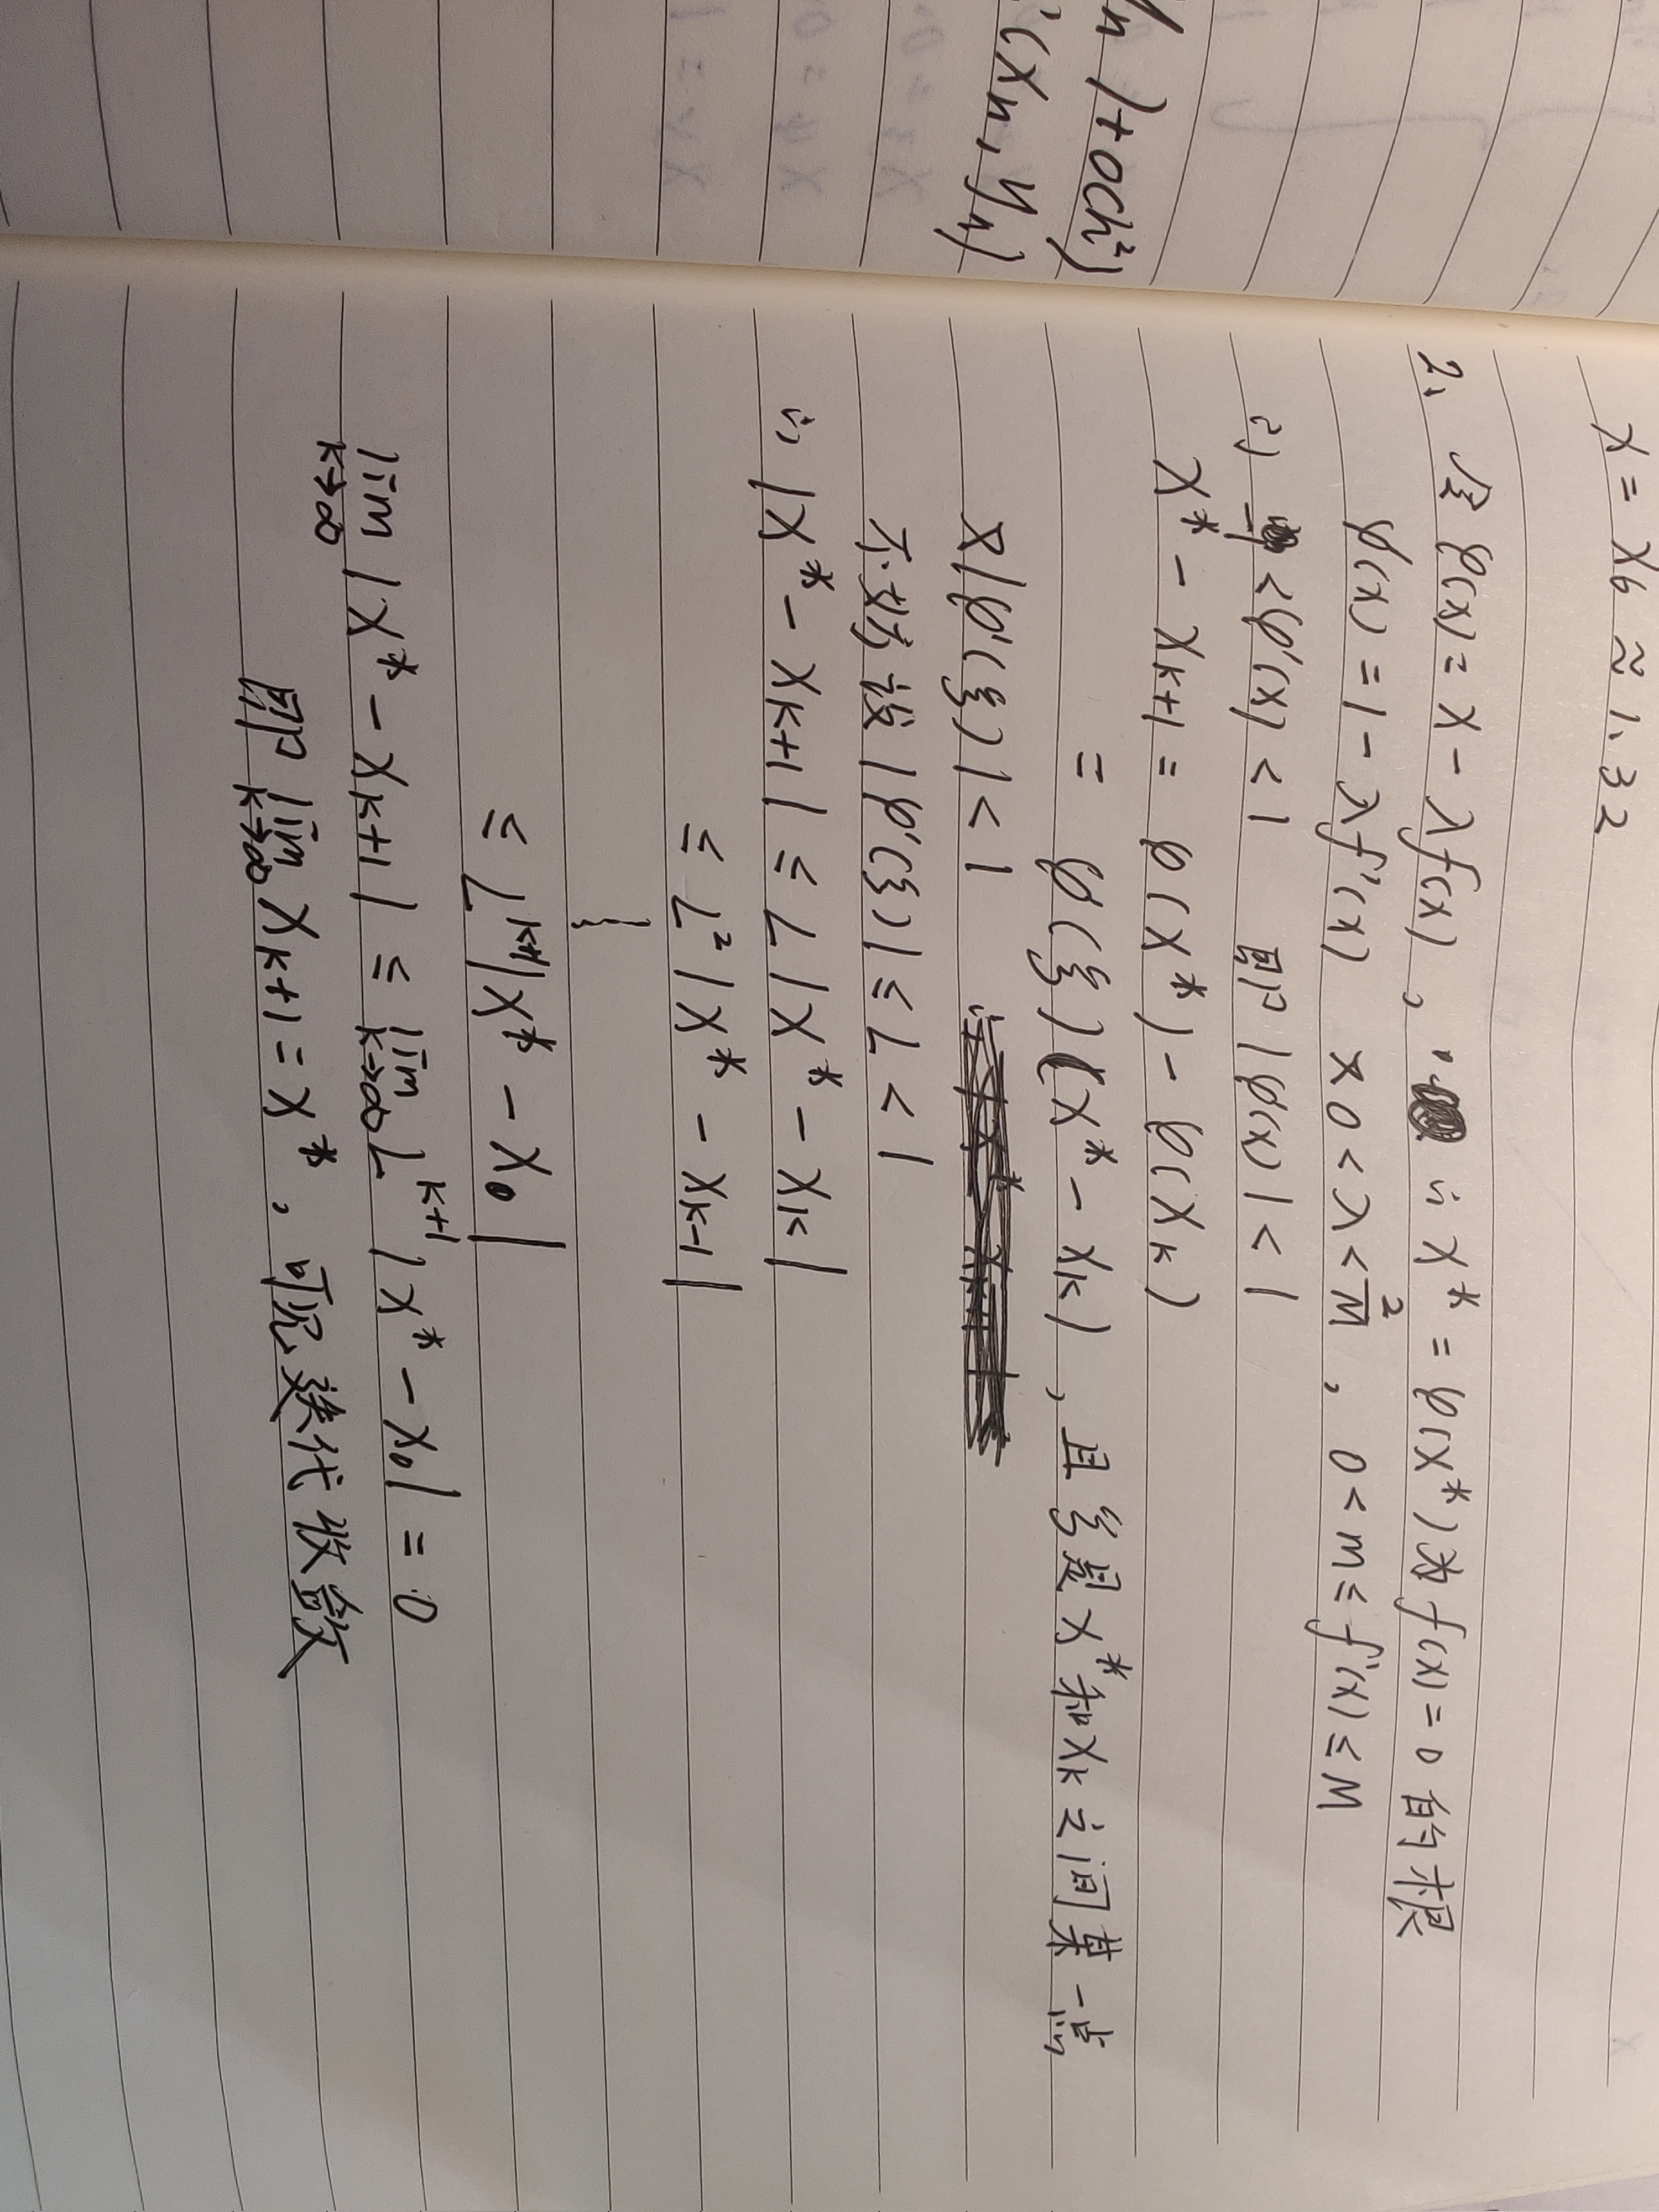 x = x₆ ≈ 1.32
2、 令 φ(x) = x − λf(x) , ∴ x* = φ(x*) 为 f(x) = 0 的根
φ'(x) = 1 − λf'(x) 又 0 < λ < 2/M , 0 < m ≤ f'(x) ≤ M
∴ -1 < φ'(x) < 1 即 |φ'(x)| < 1
x* − x_{k+1} = φ(x*) − φ(x_k)
= φ'(ξ)(x* − x_k) , 且ξ是x*和x_k之间某一点
又|φ'(ξ)| < 1
不妨设|φ'(ξ)| ≤ L < 1
∴ |x* − x_{k+1}| ≤ L|x* − x_k|
≤ L²|x* − x_{k−1}|
⋮
≤ L^{k+1}|x* − x₀|
lim_{k→∞} |x* − x_{k+1}| ≤ lim_{k→∞} L^{k+1} |x* − x₀| = 0
即 lim_{k→∞} x_{k+1} = x* , 可见迭代收敛
n ) + o(h²)
'(x_n, y_n)